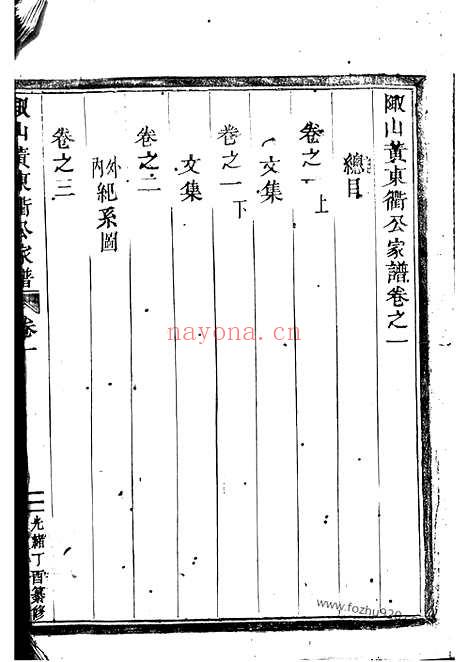 陬山黃東衢公家譜卷之一
總目
卷之一上
文集
卷之一下
文集
卷之二
外內紀系圖
卷之三
陬山黃東衢公家譜
卷一
光緒丁酉纂修
nayona.cn
www.fozhu920